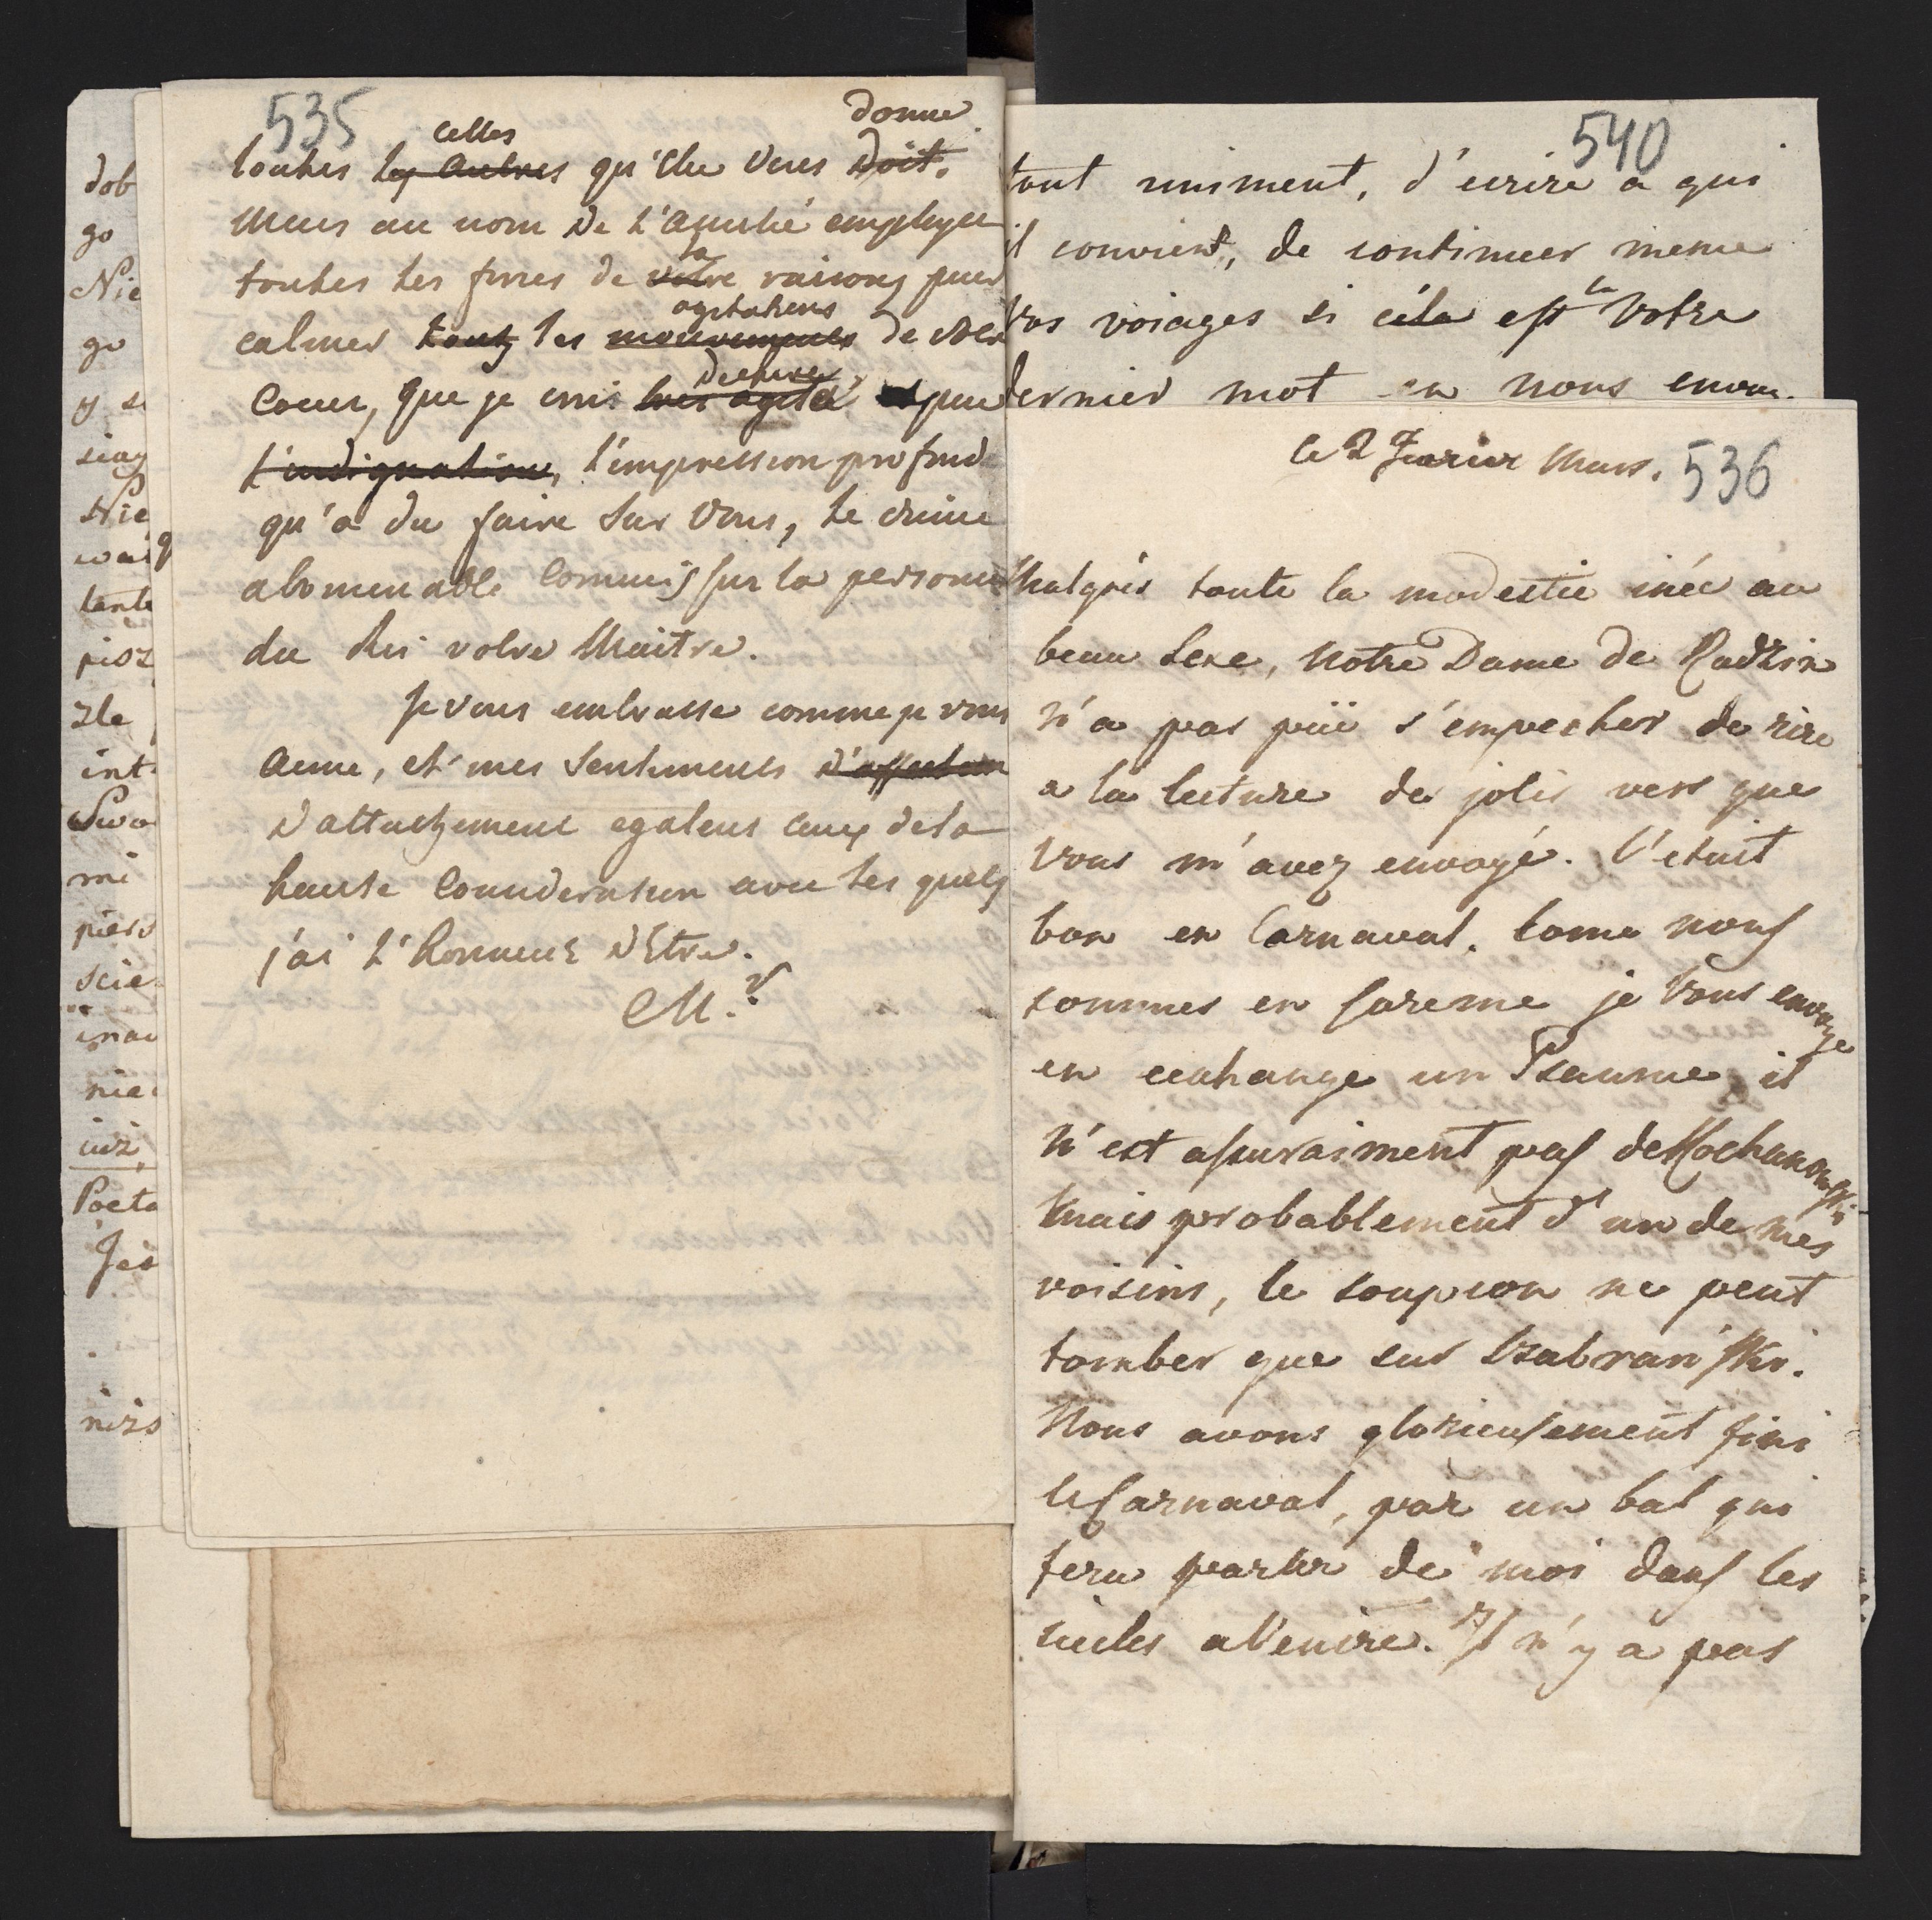 dob
go
Nie
go
y s
siag
Nie
wai
tante
pisz
zle
int
Swo
mi
piers
scie
inac
nie
iuz,
Poeta
Jes
niz s
535
celles
donne
toutes les autres qu'elle vous doit.
Mais au nom de l'amitié employer
la
toutes les forces de votre raisons pour
agitations
calmer tout les mouvements de votre
Dechiré
Coeur, que je crois tres agité par
l'indignation, l'impression profond
qu'a du faire sur Vous, le crime
abomenable Commis sur la personne
du Roi votre Maitre.
Je vous embrasse comme je vous
aime, et mes Sentiments d'affection
D'attachement egalent ceux de la
haute Consideration avec les quels
j'ai l'Honneur d'Etre.
M.
540
tout uniment, d'ecrire a qui
il convient, de continuer meme
la
Vos voiages si cela est Votre
dernier mot en nous envo
le 2 Fevrier Mars.
536
Malgrés toute la modestie inée au
beau Sexe, Notre Dame de Radzin
n'a pas püe s'empecher de rire
a la lecture de jolis vers que
Vous m'avez envoyé. C'etait
bon en Carnaval. Come nous
sommes en Careme je Vous envoye
en eechange un Pseaume, il
n'est assuraiment pas de Kochanowski
Mais probablement d'un de mes
voisins, le soupcon ne peut
tomber que sur Szabrański.
Nous avons glorieusement fini
le Carnaval, par un bal qui
fera parler de moi dans les
siecles a Venire. Il n'y a pas